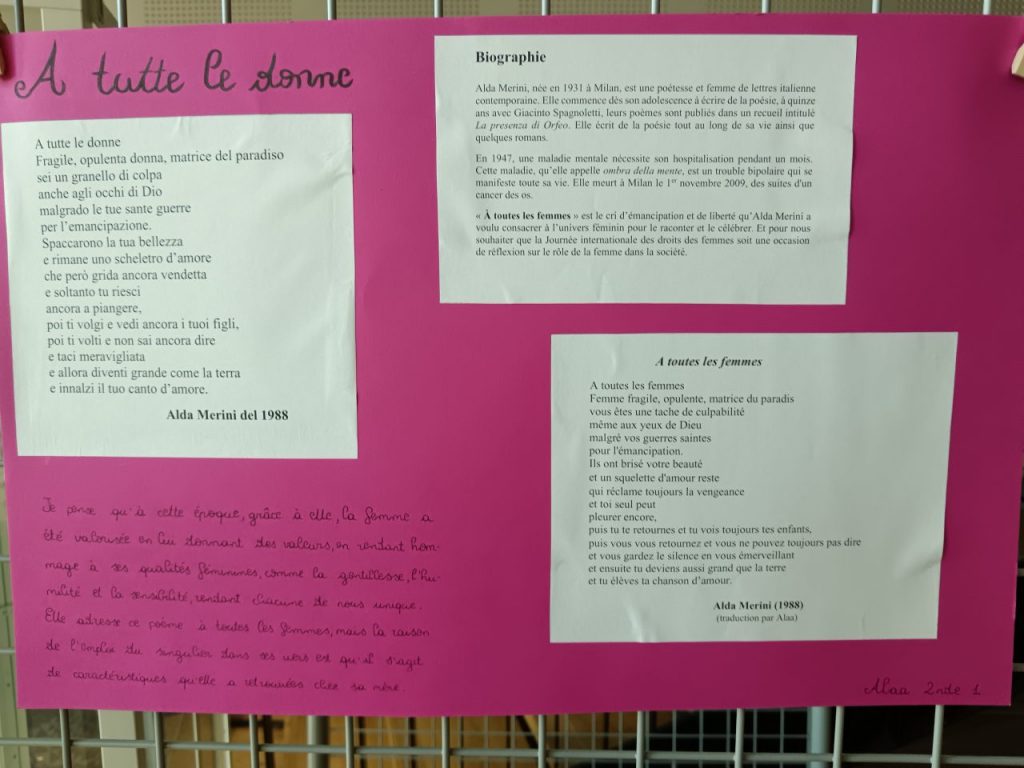 A tutte le donne
A tutte le donne
Fragile, opulenta donna, matrice del paradiso
sei un granello di colpa
anche agli occhi di Dio
malgrado le tue sante guerre
per l'emancipazione.
Spaccarono la tua bellezza
e rimane uno scheletro d'amore
che però grida ancora vendetta
e soltanto tu riesci
ancora a piangere,
poi ti volgi e vedi ancora i tuoi figli,
poi ti volti e non sai ancora dire
e taci meravigliata
e allora diventi grande come la terra
e innalzi il tuo canto d'amore.
Alda Merini del 1988
Biographie
Alda Merini, née en 1931 à Milan, est une poétesse et femme de lettres italienne
contemporaine. Elle commence dès son adolescence à écrire de la poésie, à quinze
ans avec Giacinto Spagnoletti, leurs poèmes sont publiés dans un recueil intitulé
La presenza di Orfeo. Elle écrit de la poésie tout au long de sa vie ainsi que
quelques romans.
En 1947, une maladie mentale nécessite son hospitalisation pendant un mois.
Cette maladie, qu'elle appelle ombra della mente, est un trouble bipolaire qui se
manifeste toute sa vie. Elle meurt à Milan le 1er novembre 2009, des suites d'un
cancer des os.
« À toutes les femmes » est le cri d'émancipation et de liberté qu'Alda Merini a
voulu consacrer à l'univers féminin pour le raconter et le célébrer. Et pour nous
souhaiter que la Journée internationale des droits des femmes soit une occasion
de réflexion sur le rôle de la femme dans la société.
A toutes les femmes
A toutes les femmes
Femme fragile, opulente, matrice du paradis
vous êtes une tache de culpabilité
même aux yeux de Dieu
malgré vos guerres saintes
pour l'émancipation.
Ils ont brisé votre beauté
et un squelette d'amour reste
qui réclame toujours la vengeance
et toi seul peut
pleurer encore,
puis tu te retournes et tu vois toujours tes enfants,
puis vous vous retournez et vous ne pouvez toujours pas dire
et vous gardez le silence en vous émerveillant
et ensuite tu deviens aussi grand que la terre
et tu élèves ta chanson d'amour.
Alda Merini (1988)
(traduction par Alaa)
Je pense qu'à cette époque, grâce à elle, la femme a
été valorisée en lui donnant des valeurs, en rendant hom-
mage à ses qualités féminines, comme la gentillesse, l'hu-
milité et la sensibilité, rendant chacune de nous unique.
Elle adresse ce poème à toutes les femmes, mais la raison
de l'emploi du singulier dans ses vers est qu'il s'agit
de caractéristiques qu'elle a retrouvées chez sa mère.
Alaa 2nde 1